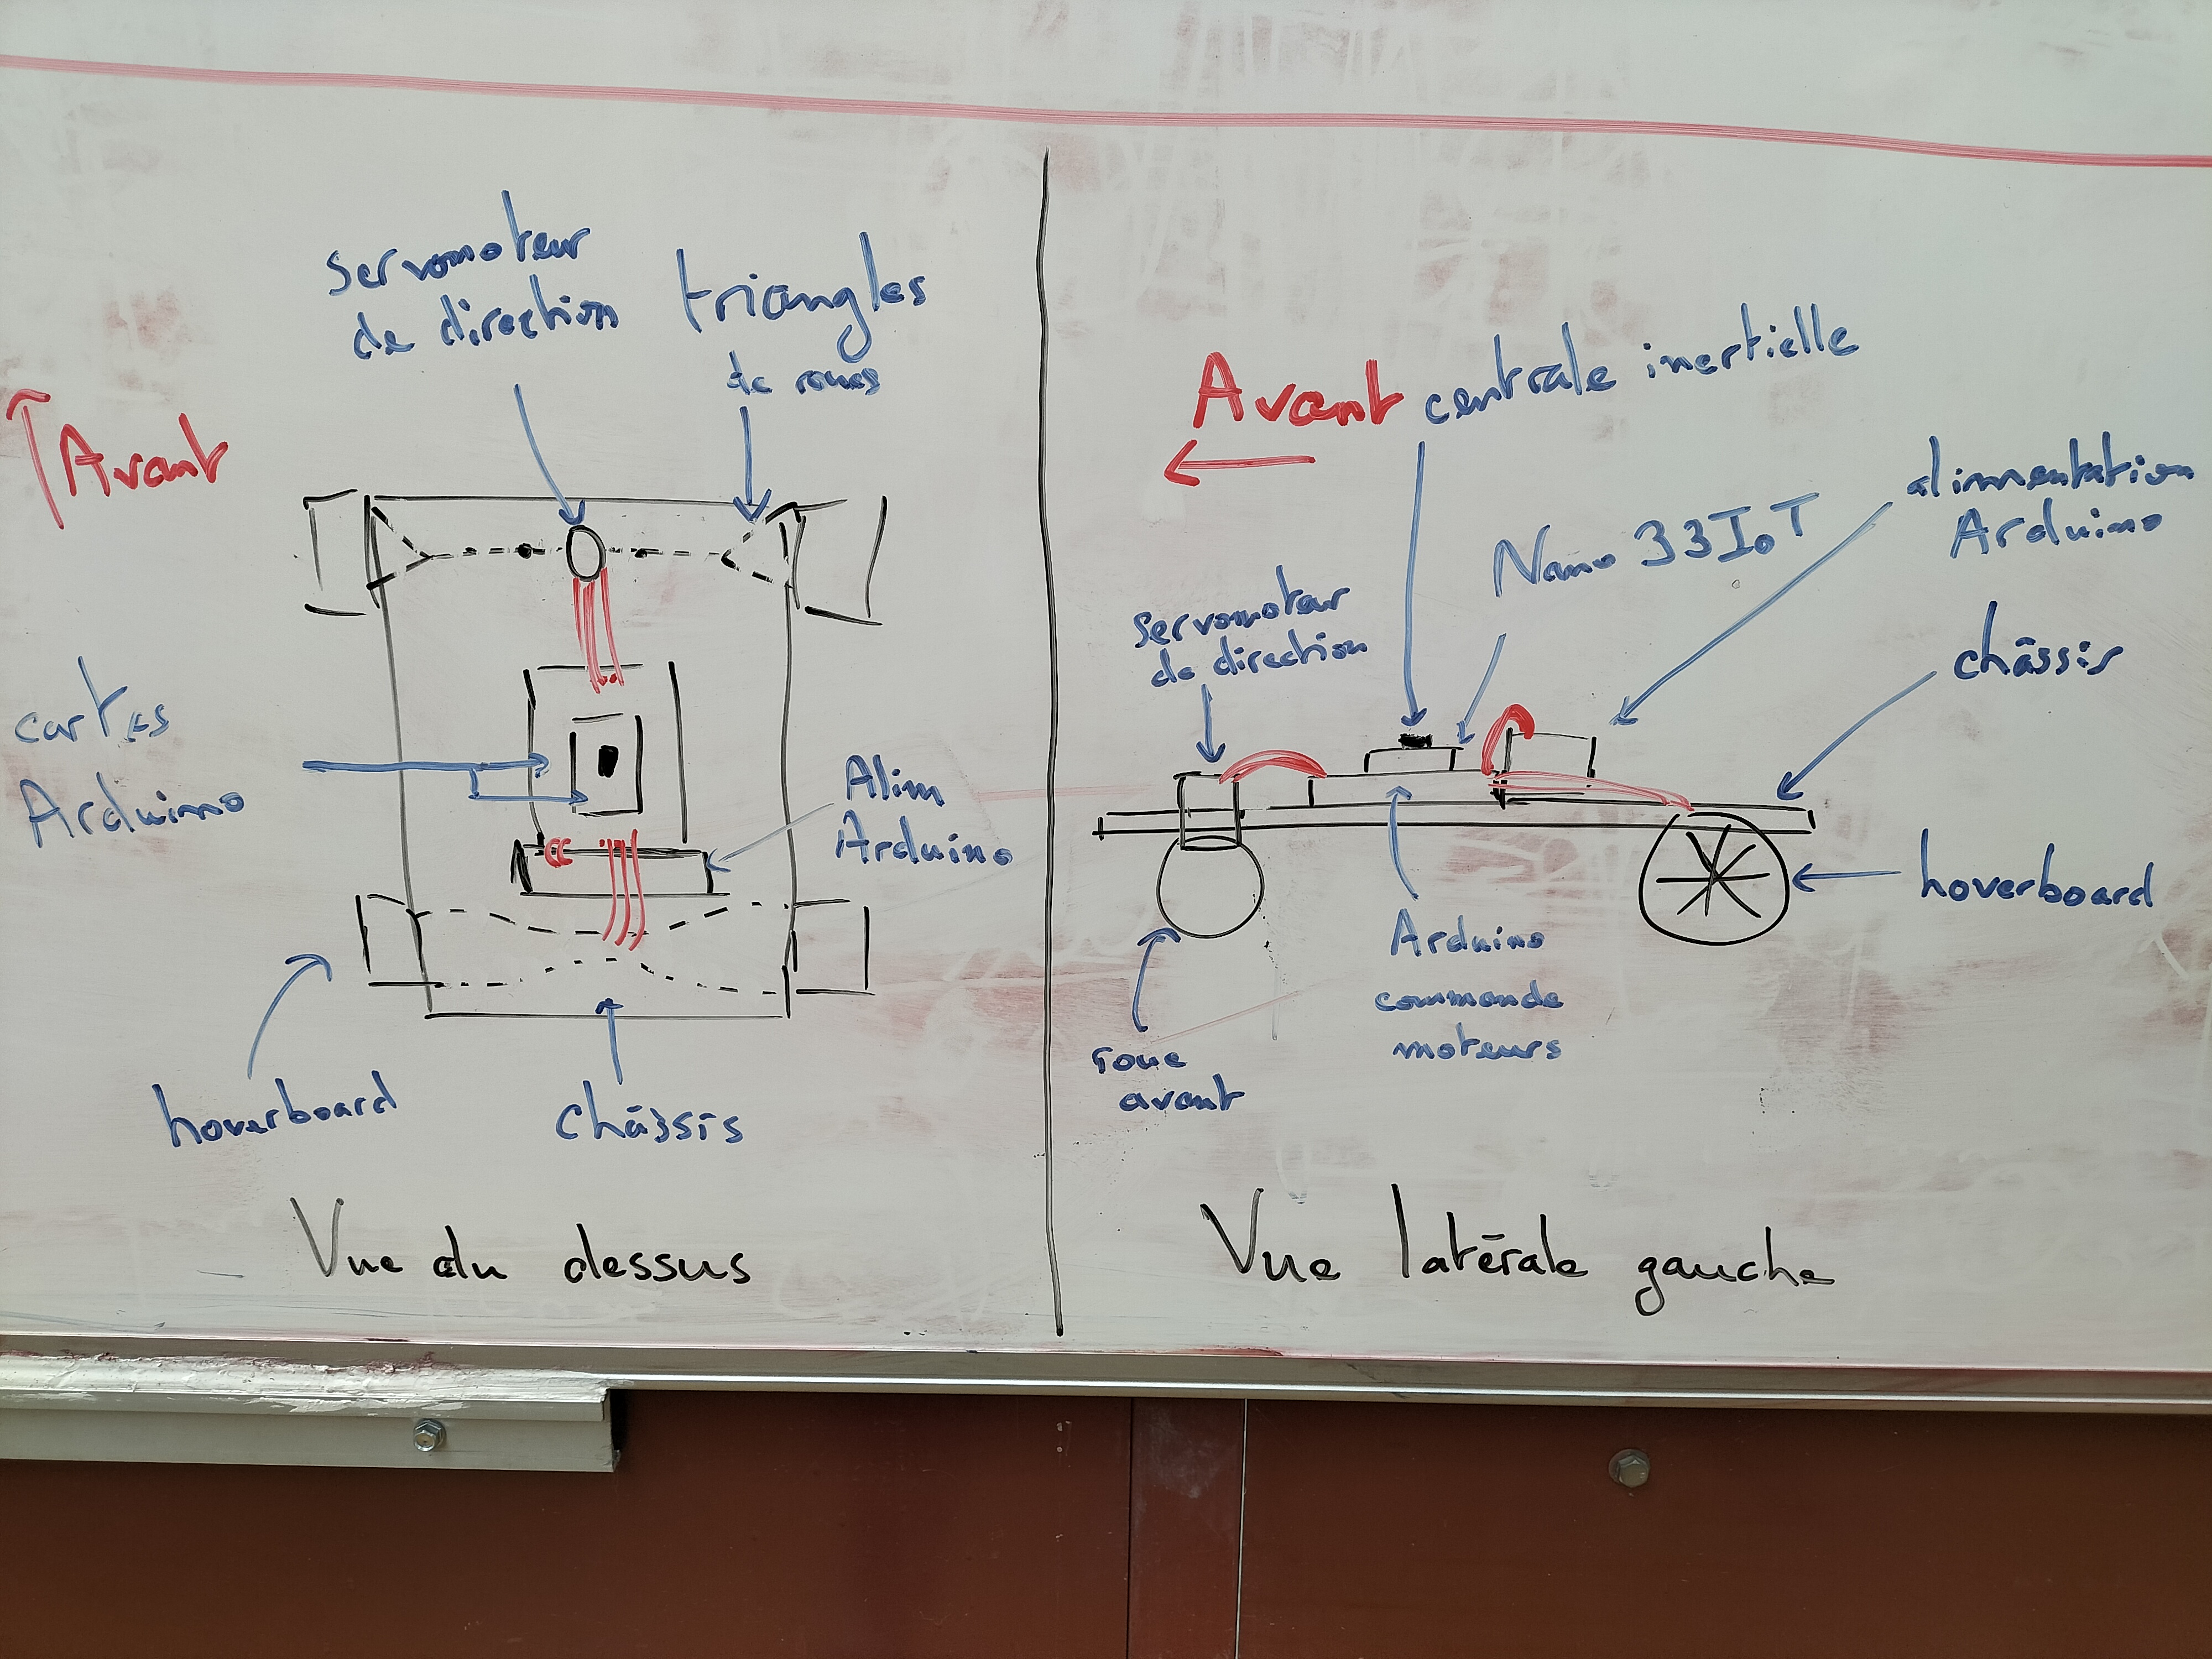 servomoteur
de direction
triangles
de roues
Avant
cartes
Arduino
Alim
Arduino
hoverboard
châssis
Vue du dessus
Avant
centrale inertielle
alimentation
Arduino
Nano 33IoT
servomoteur
de direction
châssis
hoverboard
Arduino
commande
moteurs
roue
avant
Vue latérale gauche